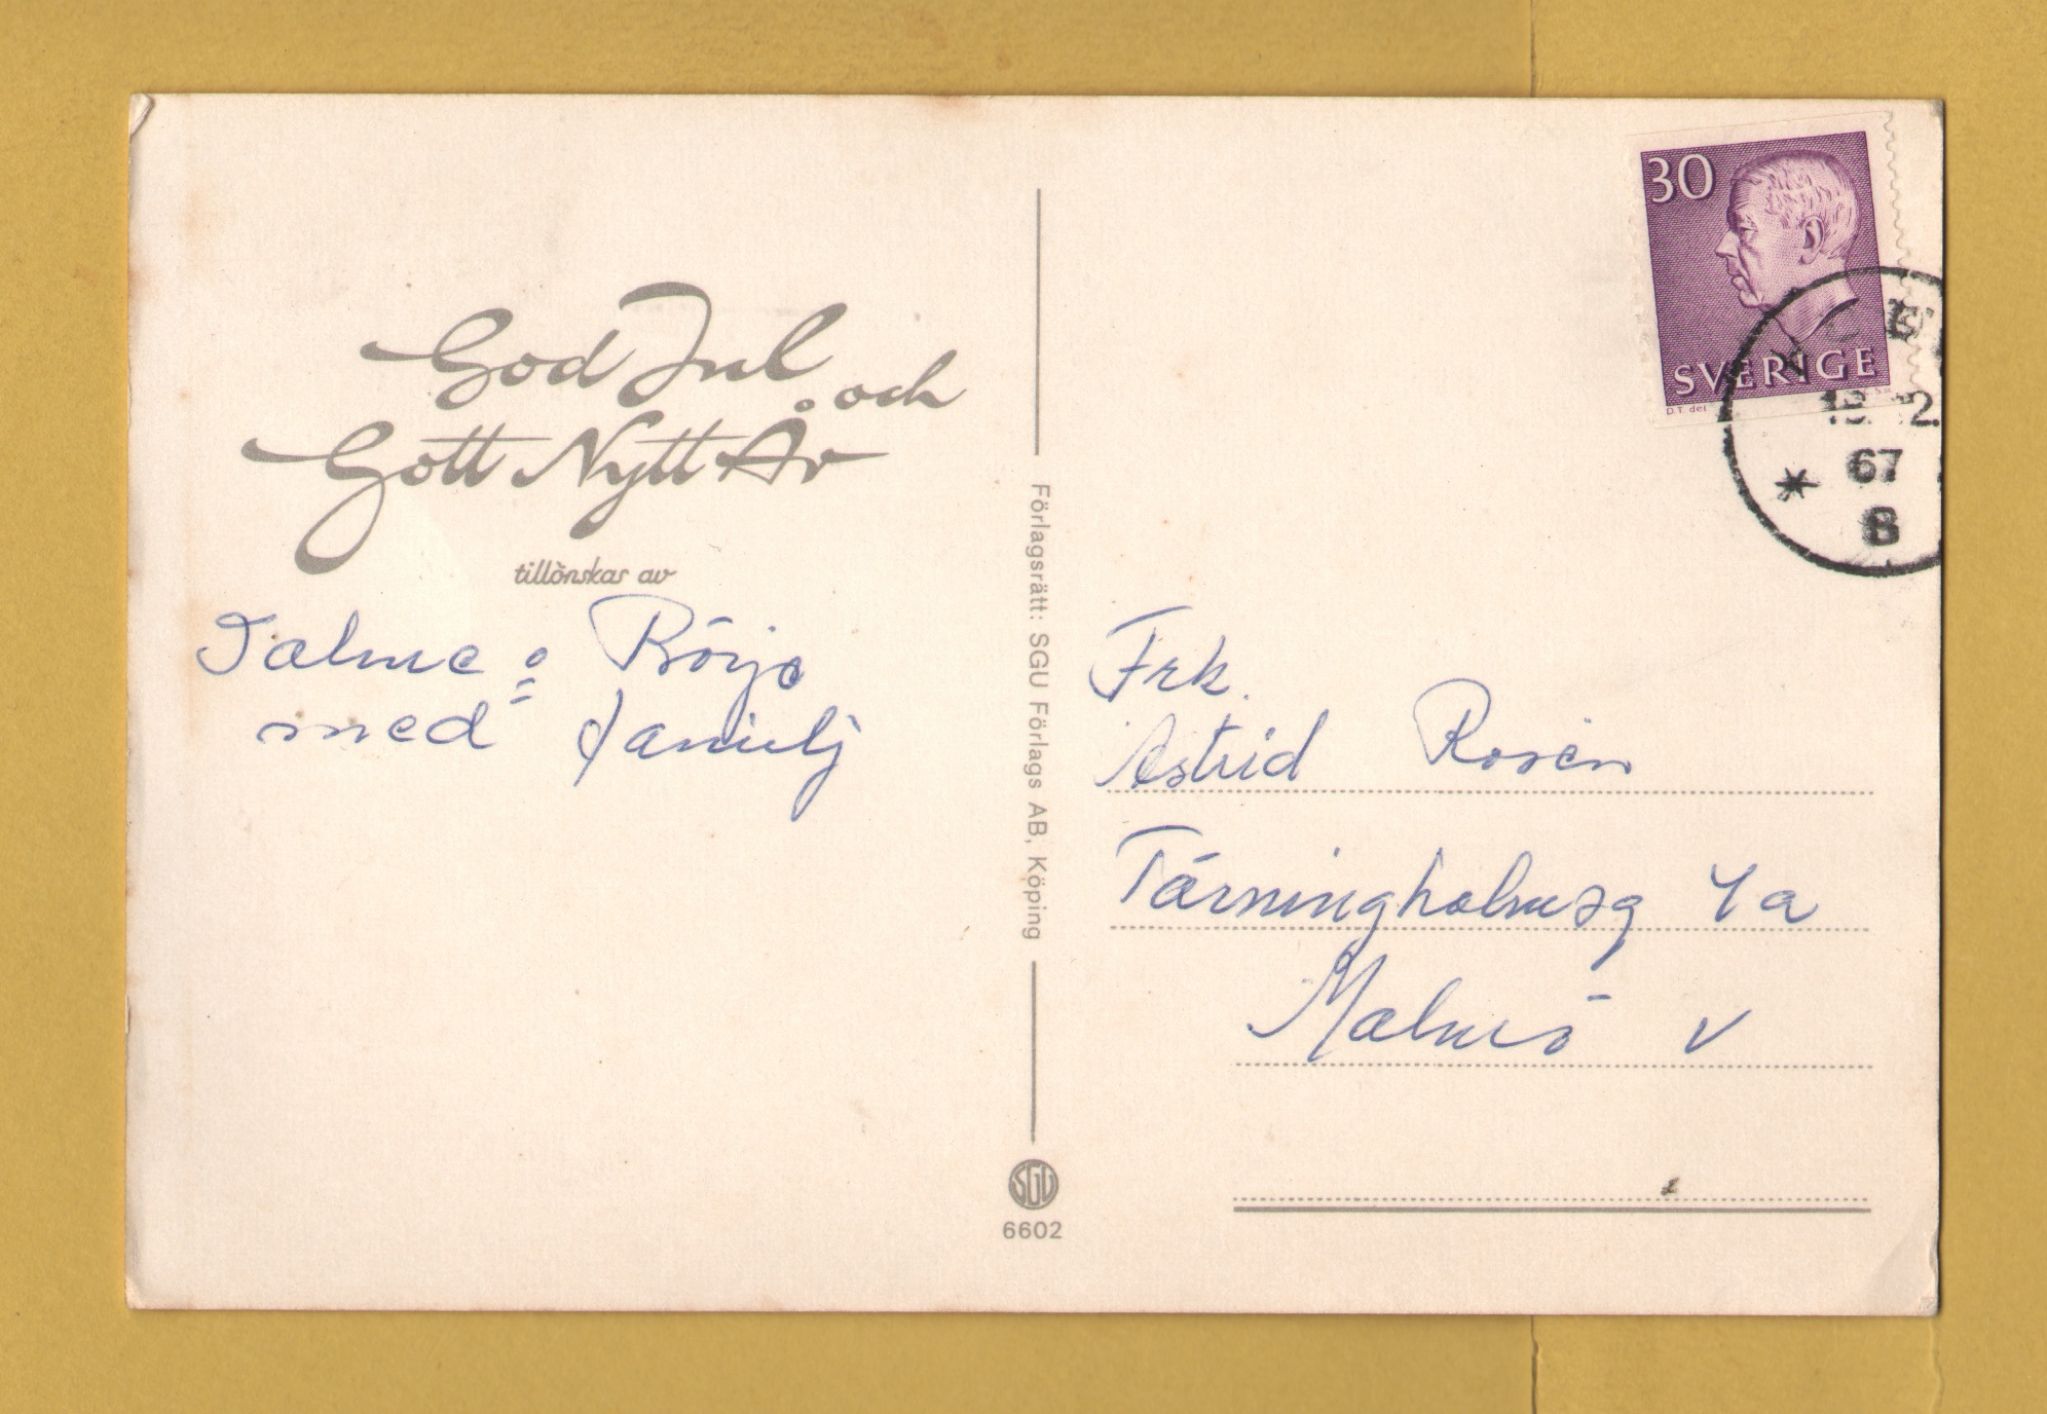 God Jul och
Gott Nytt År
tillönskas av
Börje
med familj
Förlagsrätt: SGU Förlags AB, Köping
SGU
6602
30
SVERIGE
D.T. del
67
B
Frk.
Astrid Rosén
Tärningholmsg 4a
Malmö V